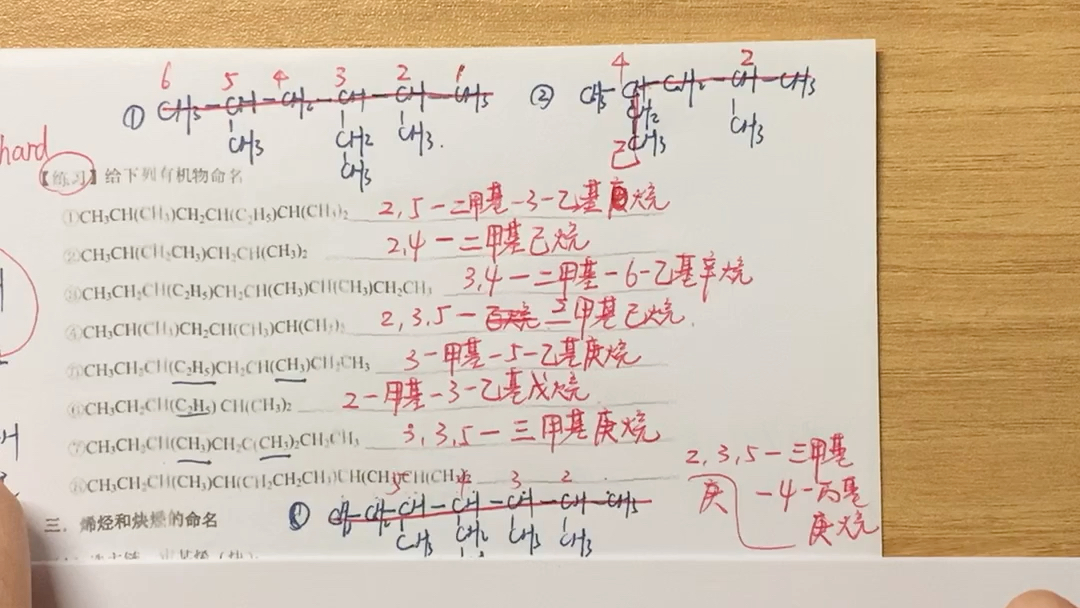 6 5 4 3 2 1 4 2
① CH3-CH-CH2-CH-CH-CH3 ② CH3-CH-CH2-CH-CH3
CH3 CH2 CH3. CH2 CH3
CH3 CH3
己
hard
【练习】给下列有机物命名
①CH3CH(CH3)CH2CH(C2H5)CH(CH3)2 2,5-二甲基-3-乙基 烷
②CH3CH(CH2CH3)CH2CH(CH3)2 2,4-二甲基己烷
③CH3CH2CH(C2H5)CH2CH(CH3)CH(CH3)CH2CH3 3,4-二甲基-6-乙基辛烷
④CH3CH(CH3)CH2CH(CH3)CH(CH3)2 2,3,5-三甲基己烷.
⑤CH3CH2CH(C2H5)CH2CH(CH3)CH2CH3 3-甲基-5-乙基庚烷
⑥CH3CH2CH(C2H5)CH(CH3)2 2-甲基-3-乙基戊烷
⑦CH3CH2CH(CH3)CH2C(CH3)2CH2CH3 3,3,5-三甲基庚烷
⑧CH3CH2CH(CH3)CH(CH2CH2CH3)CH(CH3)CH(CH3)2 2,3,5-三甲基
庚 -4-丙基
庚烷
5 4 3 2
CH3-CH2-CH-CH-CH-CH-CH3
CH3 CH2 CH3 CH3
三、烯烃和炔烃的命名